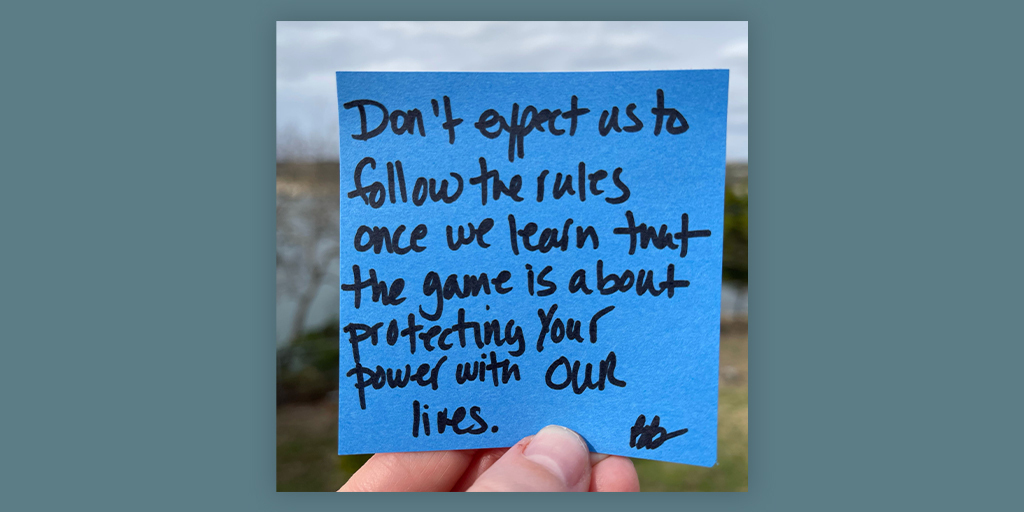 Don't expect us to
follow the rules
once we learn that
the game is about
protecting Your
power with OUR
lives.